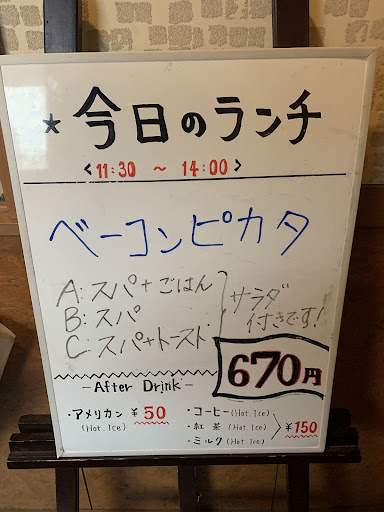 ★今日のランチ
<11:30 ~ 14:00>
ベーコンピカタ
A:スパ+ごはん
B:スパ
C:スパ+トースト
サラダ
付きです!
670円
-After Drink-
・アメリカン ¥50
(Hot. Ice)
・コーヒー(Hot. Ice)
・紅茶(Hot. Ice)
・ミルク(Hot. Ice)
¥150